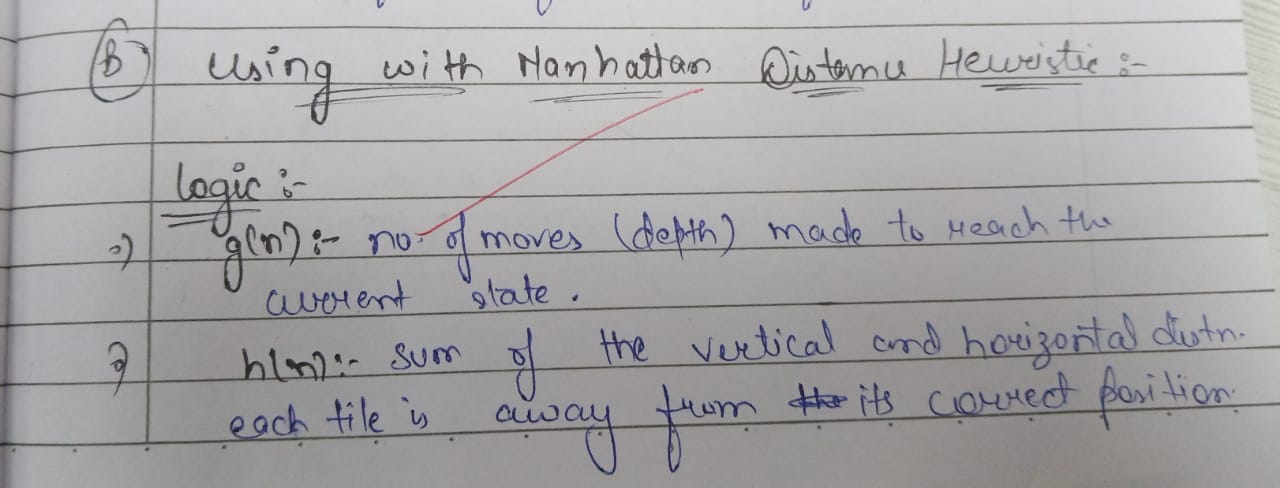 (B) Using with Manhattan Distance Heuristic :-
Logic :-
→) g(n) :- no. of moves (depth) made to reach the
current state .
→) h(n) :- sum of the vertical and horizontal distn.
each tile is away from the its correct position.